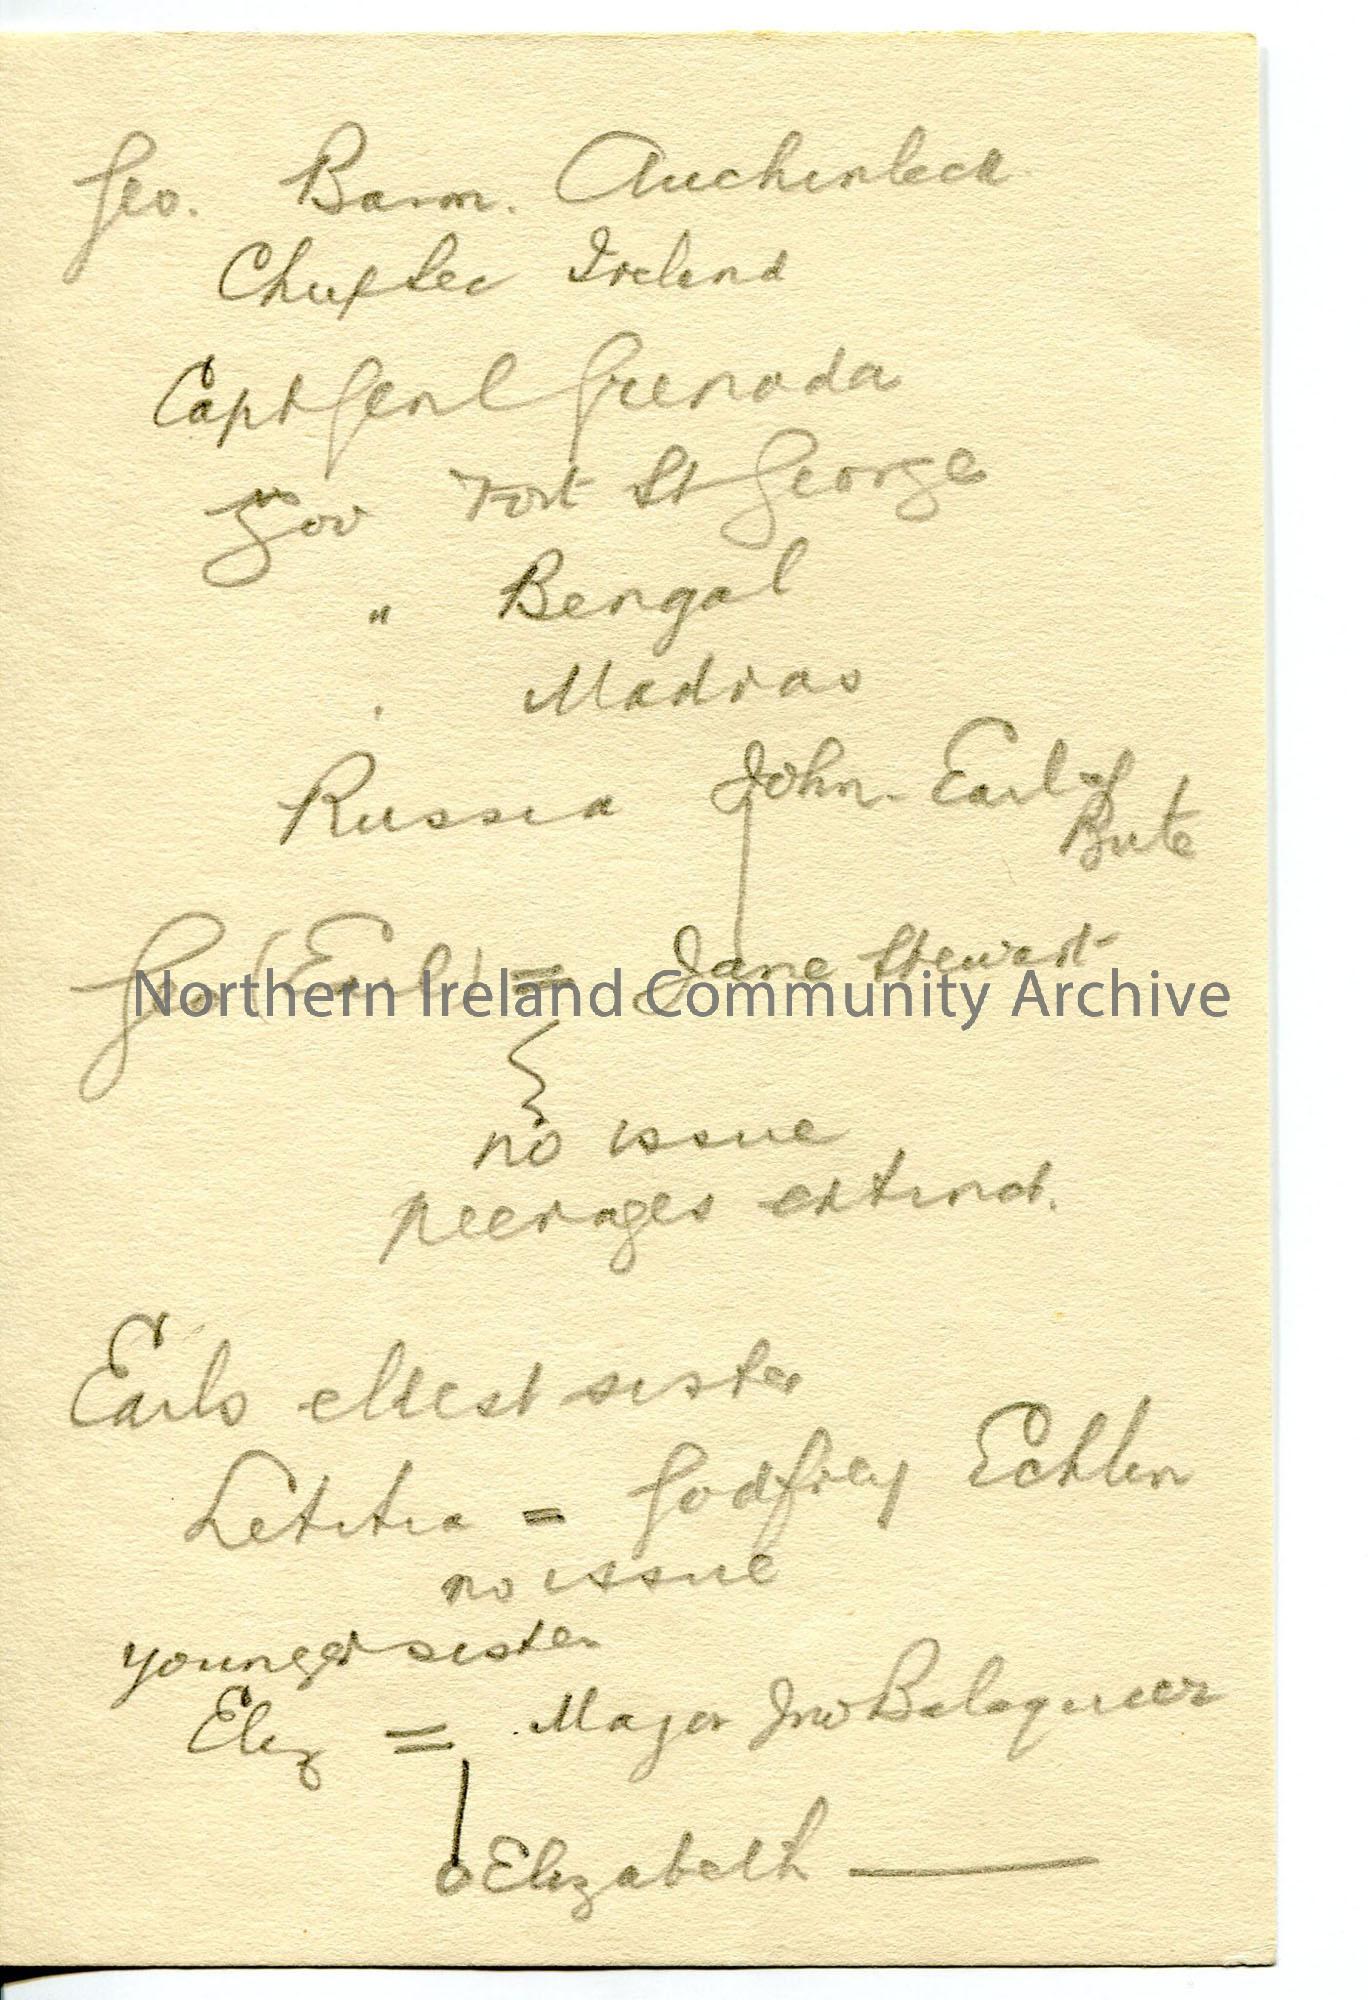 Geo. Baron. Auchenleck
Chufsec Ireland
Capt Genl Grenada
Gov Fort St George
" Bengal
" Madras
Russia John. Earl of
Bute
Geo (Earl) = Jane Stewart
Northern Ireland Community Archive
no issue
peerages extinct.
Earls eldest sister
Letitia = Godfrey Echlin
no issue
younger sister
Eliz = Major Jno Balaquier
Elizabeth